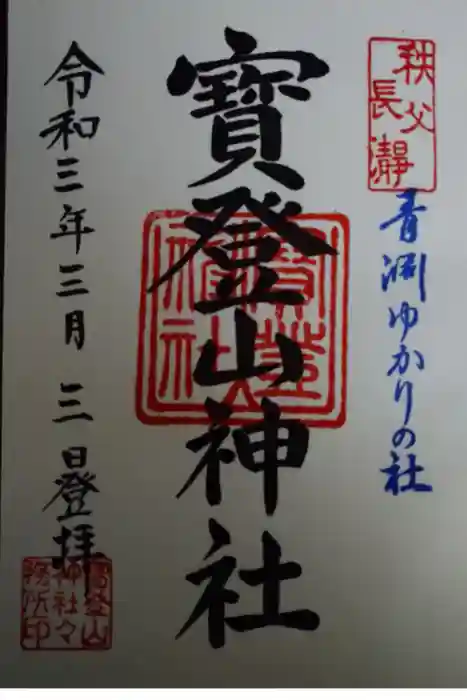 秩父
長瀞
青淵ゆかりの社
寳登山神社
寳登山
神社
令和三年三月三日登拝
寳登山
神社々
務所印